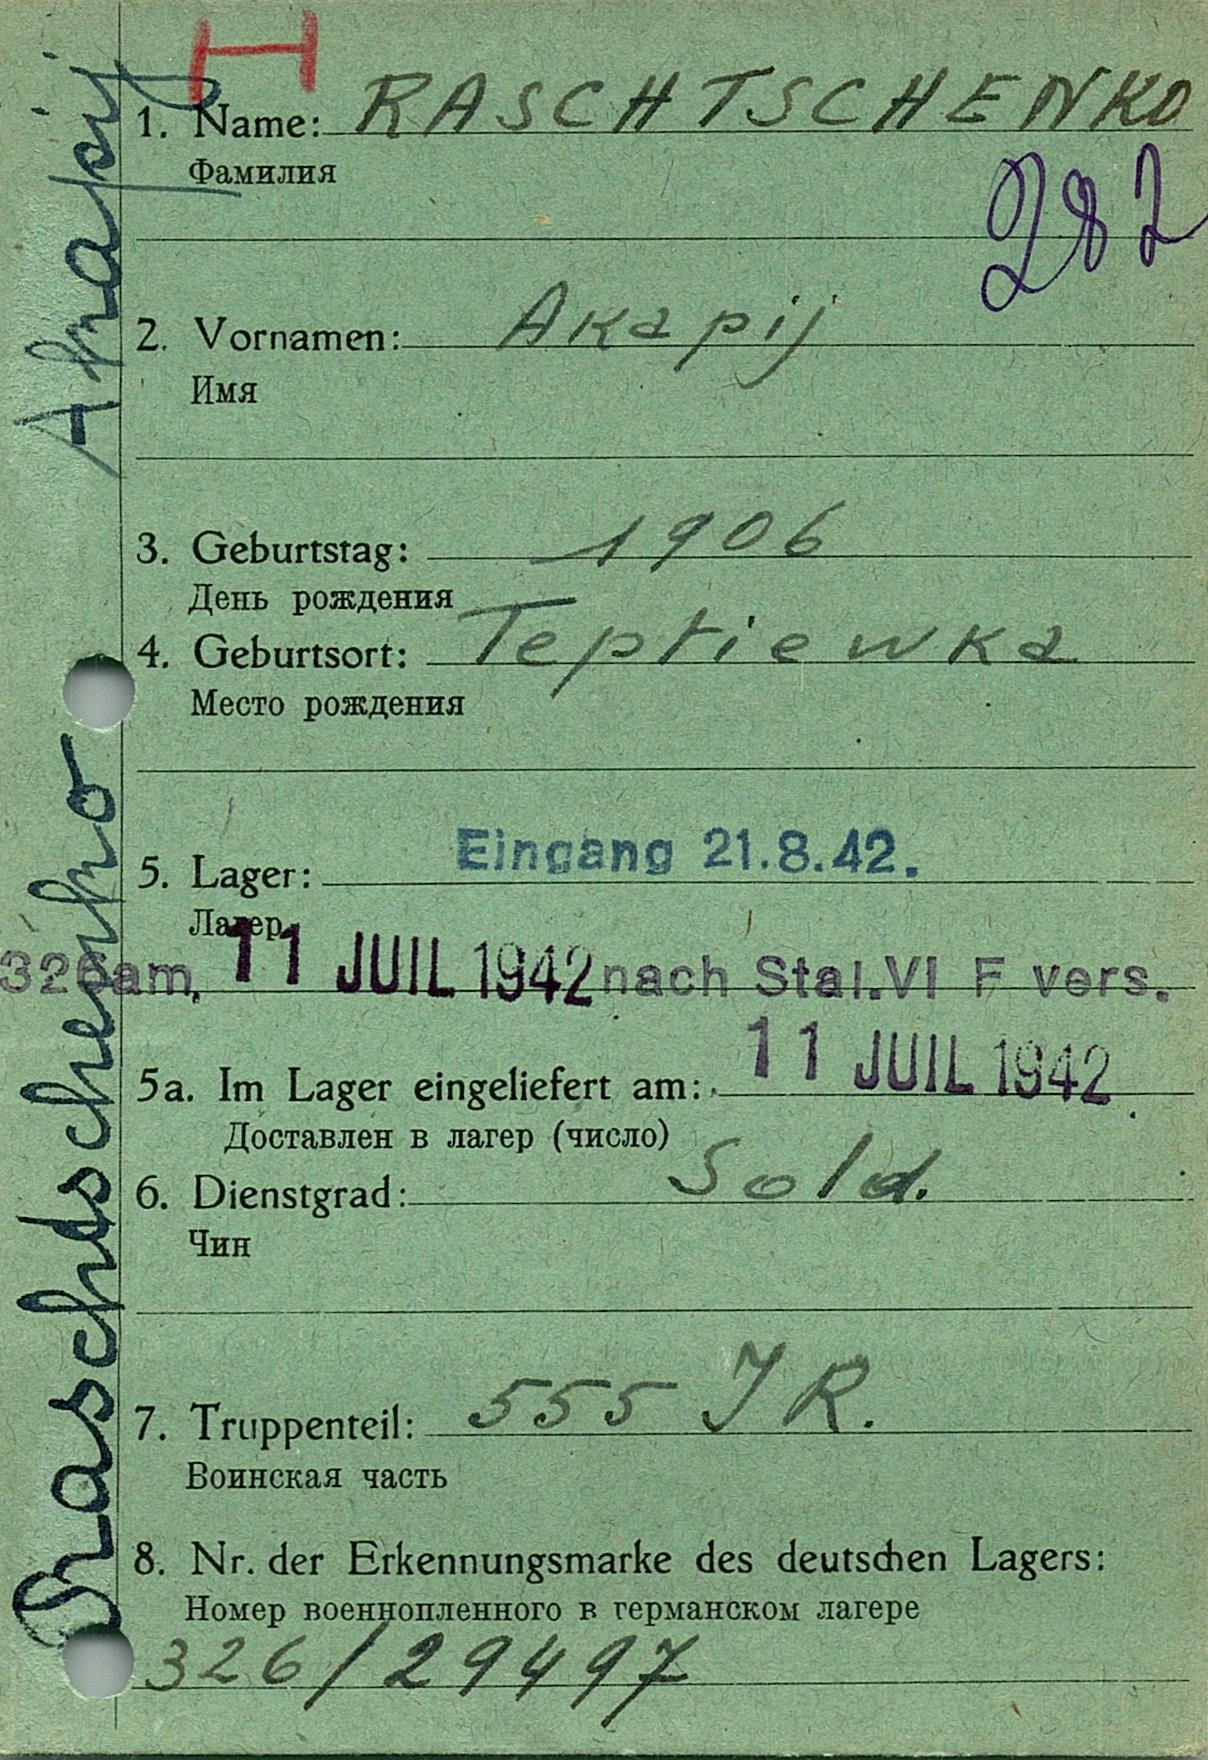 H
1. Name: RASCHTSCHENKO
Фамилия
282
2. Vornamen: Akapij
Имя
3. Geburtstag: 1906
День рождения
4. Geburtsort: Teptiewka
Место рождения
Eingang 21.8.42.
5. Lager:
Лагер
326 am, 11 JUIL 1942 nach Stal. VI F vers.
5a. Im Lager eingeliefert am: 11 JUIL 1942
Доставлен в лагер (число)
6. Dienstgrad: Sold.
Чин
7. Truppenteil: 555 JR.
Воинская часть
8. Nr. der Erkennungsmarke des deutschen Lagers:
Номер военнопленного в германском лагере
326/29497
Raschtschenko Akapij